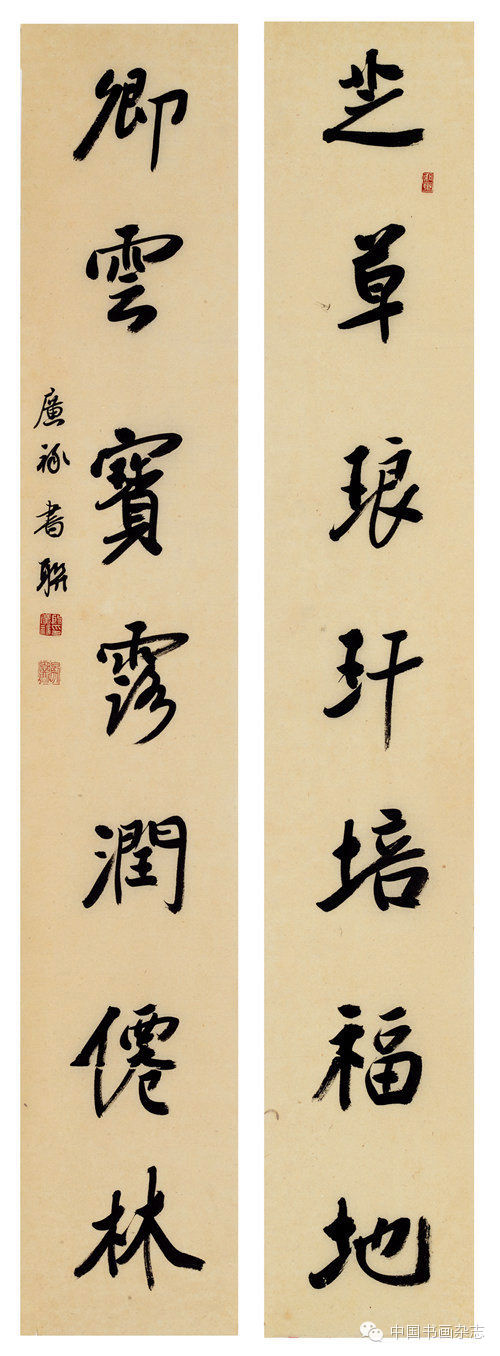 芝草琅玕培福地
卿雲寶露潤僊林
廣祿書聯
中国书画杂志